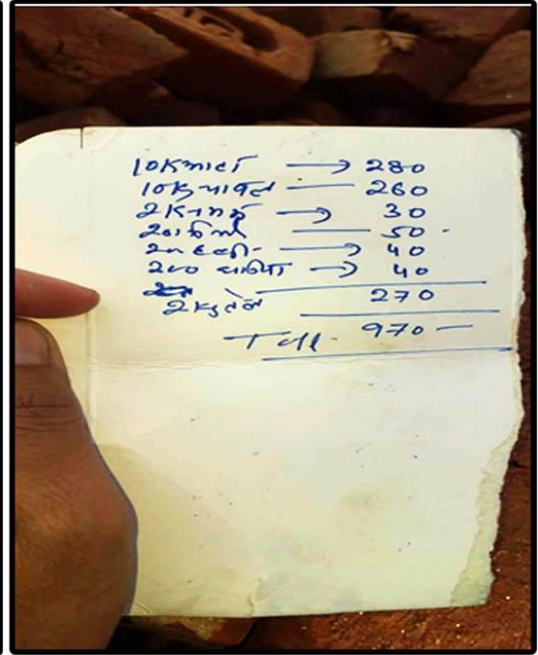 10K आटा → 280
10K चावल — 260
2K नमक → 30
200 मिर्च — 50 -
200 हल्दी → 40
200 धनिया → 40
2Kg तेल 270
Total 970 -